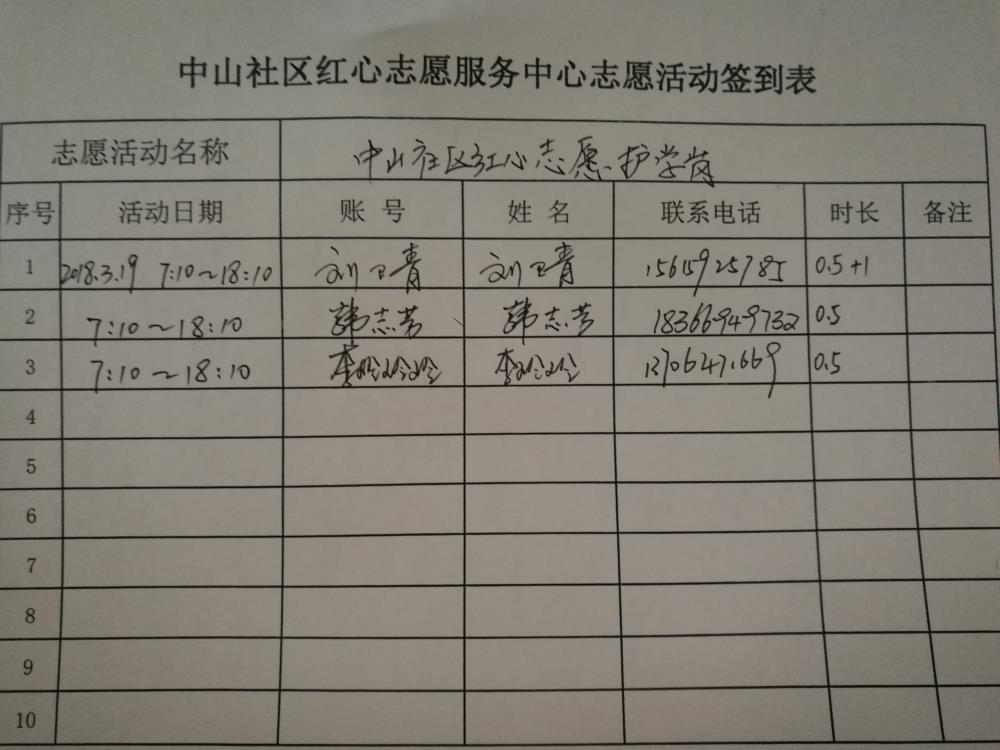 中山社区红心志愿服务中心志愿活动签到表
志愿活动名称 中山社区红心志愿护学岗
序号 活动日期 账号 姓名 联系电话 时长 备注
1 2018.3.19 7:10~18:10 刘卫青 刘卫青 15615925785 0.5+1
2 7:10~18:10 韩志芳 韩志芳 18366949732 0.5
3 7:10~18:10 李玲玲 李玲玲 0.5
4
5
6
7
8
9
10